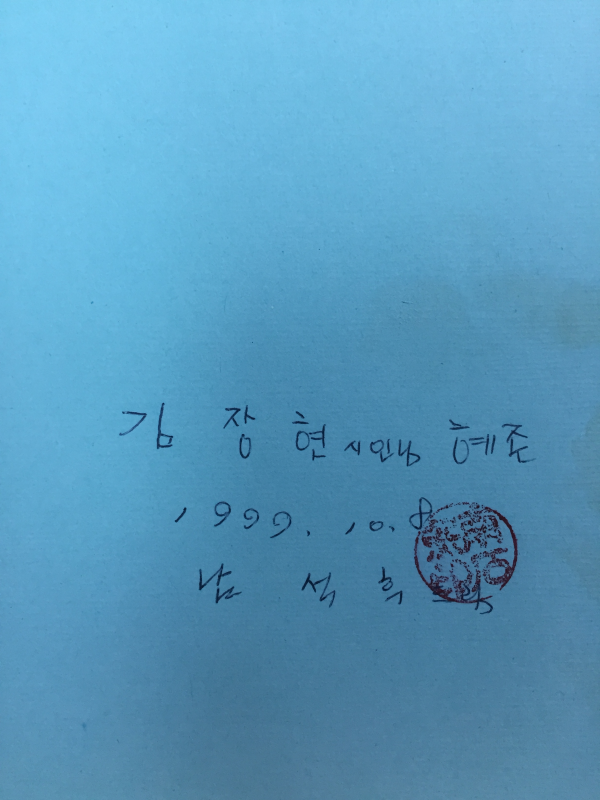 김 장 현 시인님 혜존
1999. 10. 8
남 석